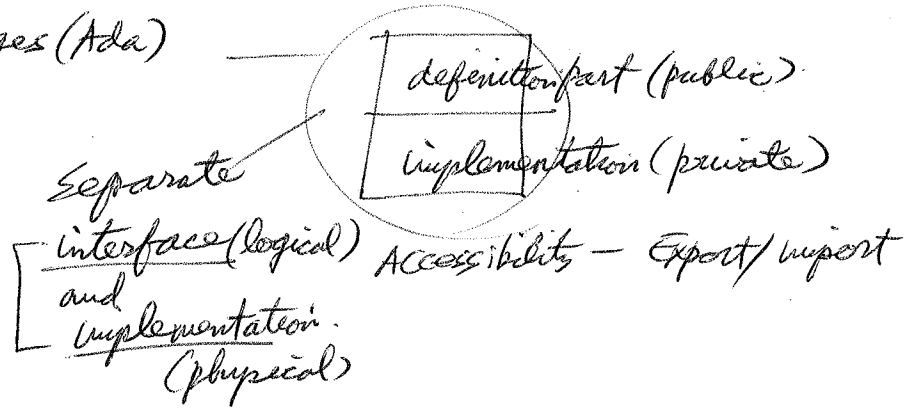 ges (Ada)
definition part (public)
implementation (private)
Separate
interface (logical)
and
implementation.
(physical)
Accessibility - Export/import